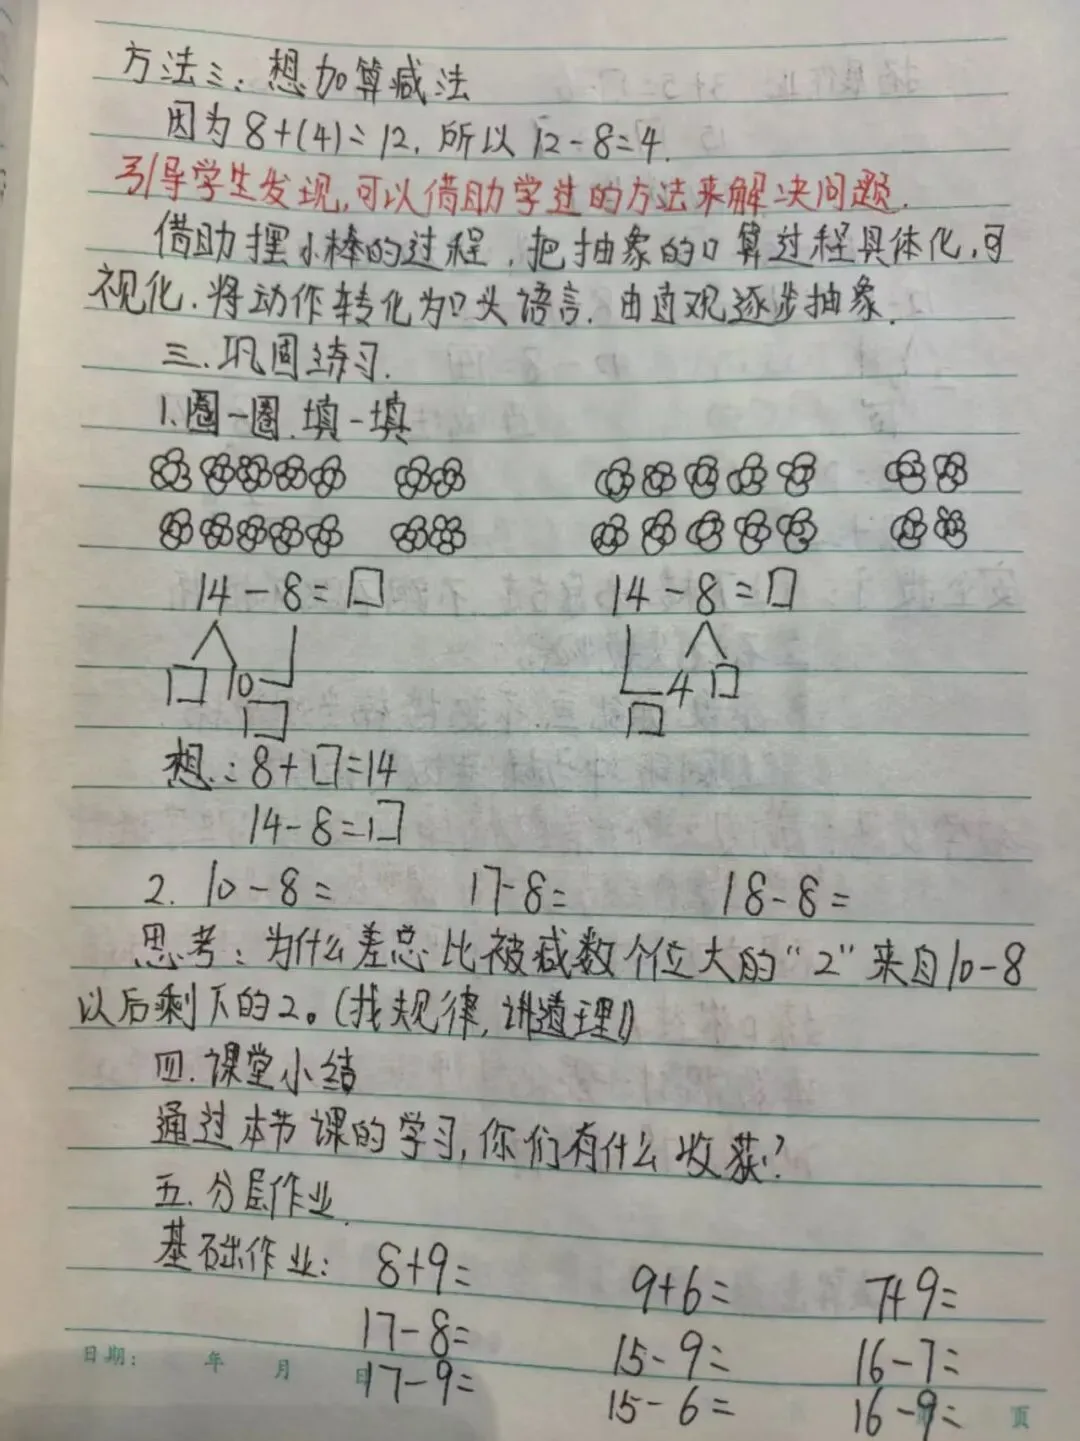 方法三:想加算减法
因为8+(4)=12,所以12-8=4.
引导学生发现,可以借助学过的方法来解决问题.
借助摆小棒的过程,把抽象的口算过程具体化,可
视化.将动作转化为口头语言.由直观逐步抽象.
三.巩固练习.
1.圈一圈.填一填
14-8=□ 14-8=□
□ 10 4 □
□ □
想:8+□=14
14-8=□
2. 10-8= 17-8= 18-8=
思考:为什么差总比被减数个位大的“2”来自10-8
以后剩下的2。(找规律,讲道理)
四.课堂小结
通过本节课的学习,你们有什么收获?
五.分层作业.
基础作业: 8+9= 9+6= 7+9=
17-8= 15-9= 16-7=
日期: 年 月 日
17-9= 15-6= 16-9= 页